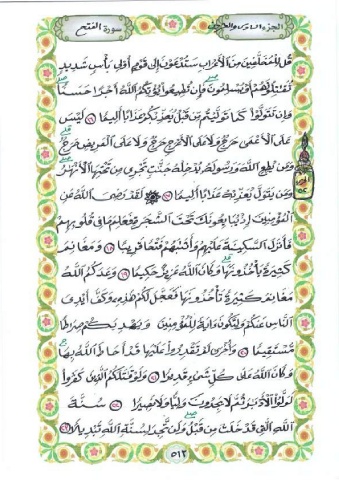 الجزء السادس والعشرون
سورة الفتح
قُل لِّلْمُخَلَّفِينَ مِنَ الْأَعْرَابِ سَتُدْعَوْنَ إِلَىٰ قَوْمٍ أُولِي بَأْسٍ شَدِيدٍ
تُقَاتِلُونَهُمْ أَوْ يُسْلِمُونَ فَإِن تُطِيعُوا يُؤْتِكُمُ اللَّهُ أَجْرًا حَسَنًا
وَإِن تَتَوَلَّوْا كَمَا تَوَلَّيْتُم مِّن قَبْلُ يُعَذِّبْكُمْ عَذَابًا أَلِيمًا ١٦ لَّيْسَ
عَلَى الْأَعْمَىٰ حَرَجٌ وَلَا عَلَى الْأَعْرَجِ حَرَجٌ وَلَا عَلَى الْمَرِيضِ حَرَجٌ
وَمَن يُطِعِ اللَّهَ وَرَسُولَهُ يُدْخِلْهُ جَنَّاتٍ تَجْرِي مِن تَحْتِهَا الْأَنْهَارُ
وَمَن يَتَوَلَّ يُعَذِّبْهُ عَذَابًا أَلِيمًا ١٧ لَّقَدْ رَضِيَ اللَّهُ عَنِ
الْمُؤْمِنِينَ إِذْ يُبَايِعُونَكَ تَحْتَ الشَّجَرَةِ فَعَلِمَ مَا فِي قُلُوبِهِمْ
فَأَنزَلَ السَّكِينَةَ عَلَيْهِمْ وَأَثَابَهُمْ فَتْحًا قَرِيبًا ١٨ وَمَغَانِمَ
كَثِيرَةً يَأْخُذُونَهَا وَكَانَ اللَّهُ عَزِيزًا حَكِيمًا ١٩ وَعَدَكُمُ اللَّهُ
مَغَانِمَ كَثِيرَةً تَأْخُذُونَهَا فَعَجَّلَ لَكُمْ هَٰذِهِ وَكَفَّ أَيْدِيَ
النَّاسِ عَنكُمْ وَلِتَكُونَ آيَةً لِّلْمُؤْمِنِينَ وَيَهْدِيَكُمْ صِرَاطًا
مُّسْتَقِيمًا ٢٠ وَأُخْرَىٰ لَمْ تَقْدِرُوا عَلَيْهَا قَدْ أَحَاطَ اللَّهُ بِهَا
وَكَانَ اللَّهُ عَلَىٰ كُلِّ شَيْءٍ قَدِيرًا ٢١ وَلَوْ قَاتَلَكُمُ الَّذِينَ كَفَرُوا
لَوَلَّوُا الْأَدْبَارَ ثُمَّ لَا يَجِدُونَ وَلِيًّا وَلَا نَصِيرًا ٢٢ سُنَّةَ
اللَّهِ الَّتِي قَدْ خَلَتْ مِن قَبْلُ وَلَن تَجِدَ لِسُنَّةِ اللَّهِ تَبْدِيلًا ٢٣
٥١٣